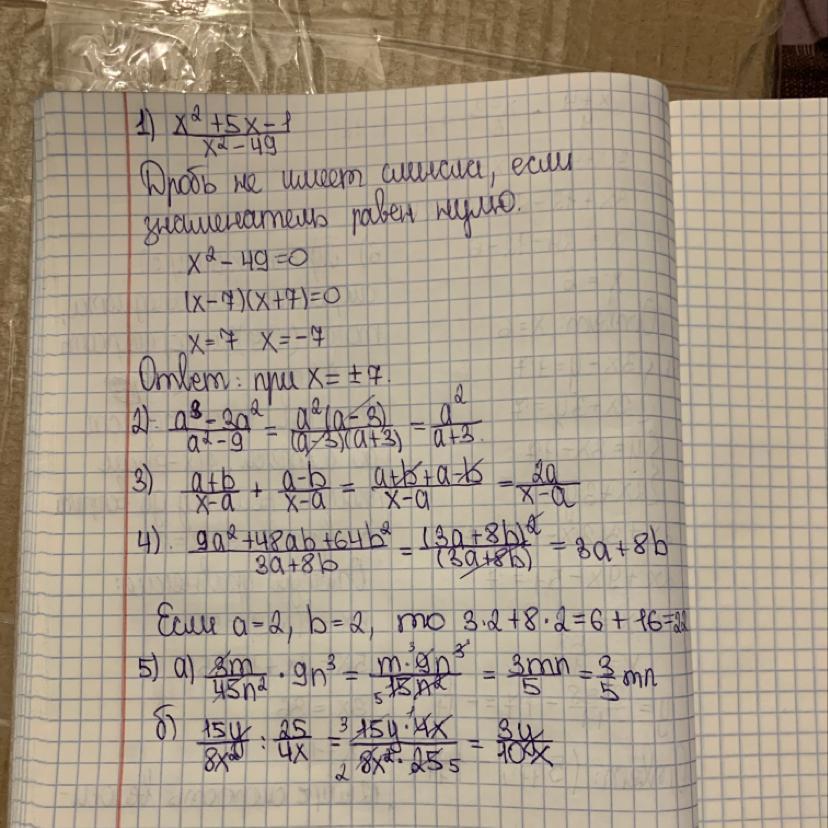 1) (x²+5x-1)/(x²-49)
Дробь не имеет смысла, если
знаменатель равен нулю.
x²-49=0
(x-7)(x+7)=0
x=7 x=-7
Ответ: при x=±7.
2) (a³-3a²)/(a²-9) = (a²(a-3))/((a-3)(a+3)) = a²/(a+3).
3) (a+b)/(x-a) + (a-b)/(x-a) = (a+b+a-b)/(x-a) = 2a/(x-a)
4). (9a²+48ab+64b²)/(3a+8b) = (3a+8b)²/(3a+8b) = 3a+8b
Если a=2, b=2, то 3·2+8·2=6+16=22
5) а) 3m/45n² · 9n³ = (m·9n³)/(15n²) = 3mn/5 = 3/5 mn
б) 15y/8x² : 25/4x = (15y·4x)/(8x²·25) = 3y/10x